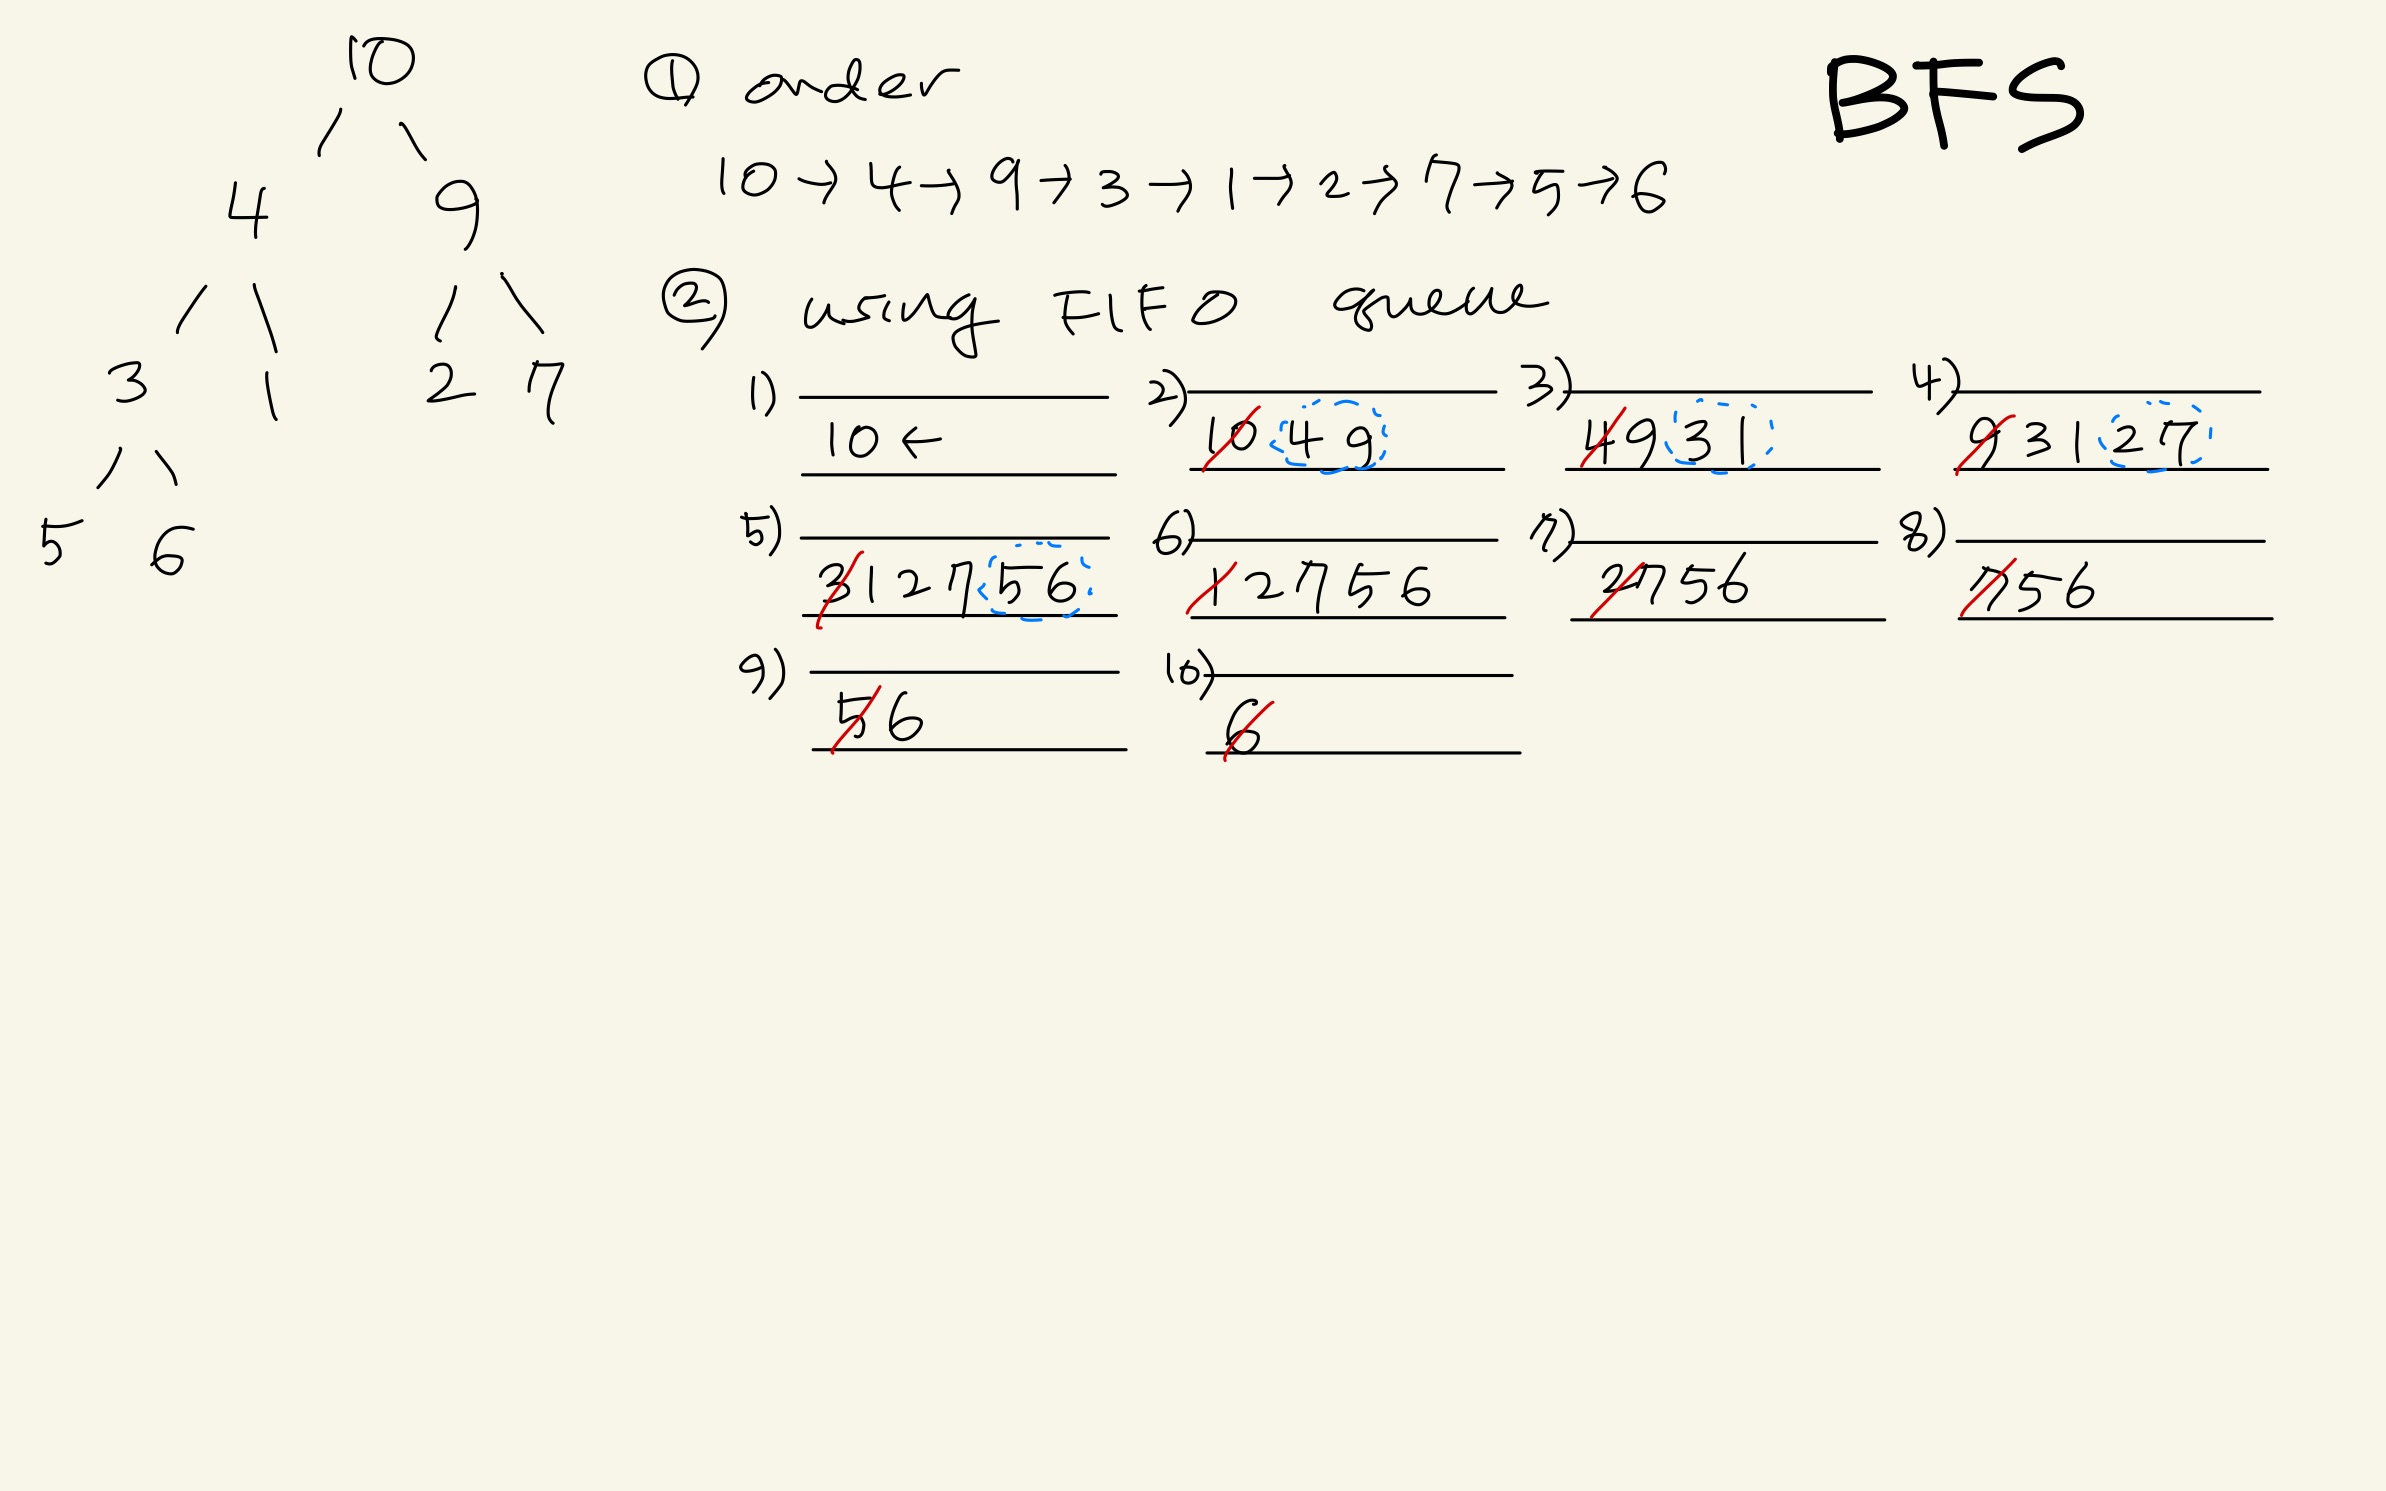 BFS
10
4 9
3 1 2 7
5 6
① order
10 → 4 → 9 → 3 → 1 → 2 → 7 → 5 → 6
② using FIFO queue
1) 10 ←
2) 10 4 9
3) 4 9 3 1
4) 9 3 1 2 7
5) 3 1 2 7 5 6
6) 1 2 7 5 6
7) 2 7 5 6
8) 7 5 6
9) 5 6
10) 6